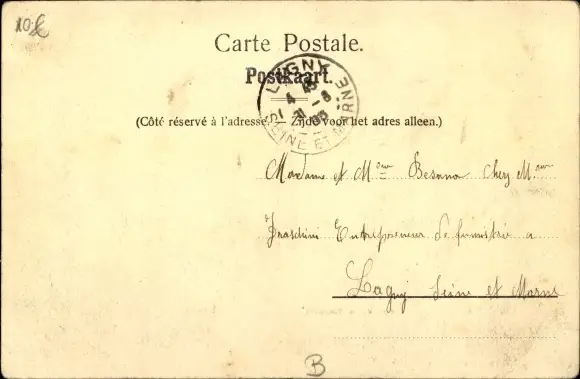 10 €
Carte Postale.
Postkaart.
LAGNY
SEINE ET MARNE
4 15
31 - 8
05
(Côté réservé à l'adresse. — Zijde voor het adres alleen.)
Madame et Melle Besana Chez M.
Entrepreneur de fumistrie a
Lagny Seine et Marne
B